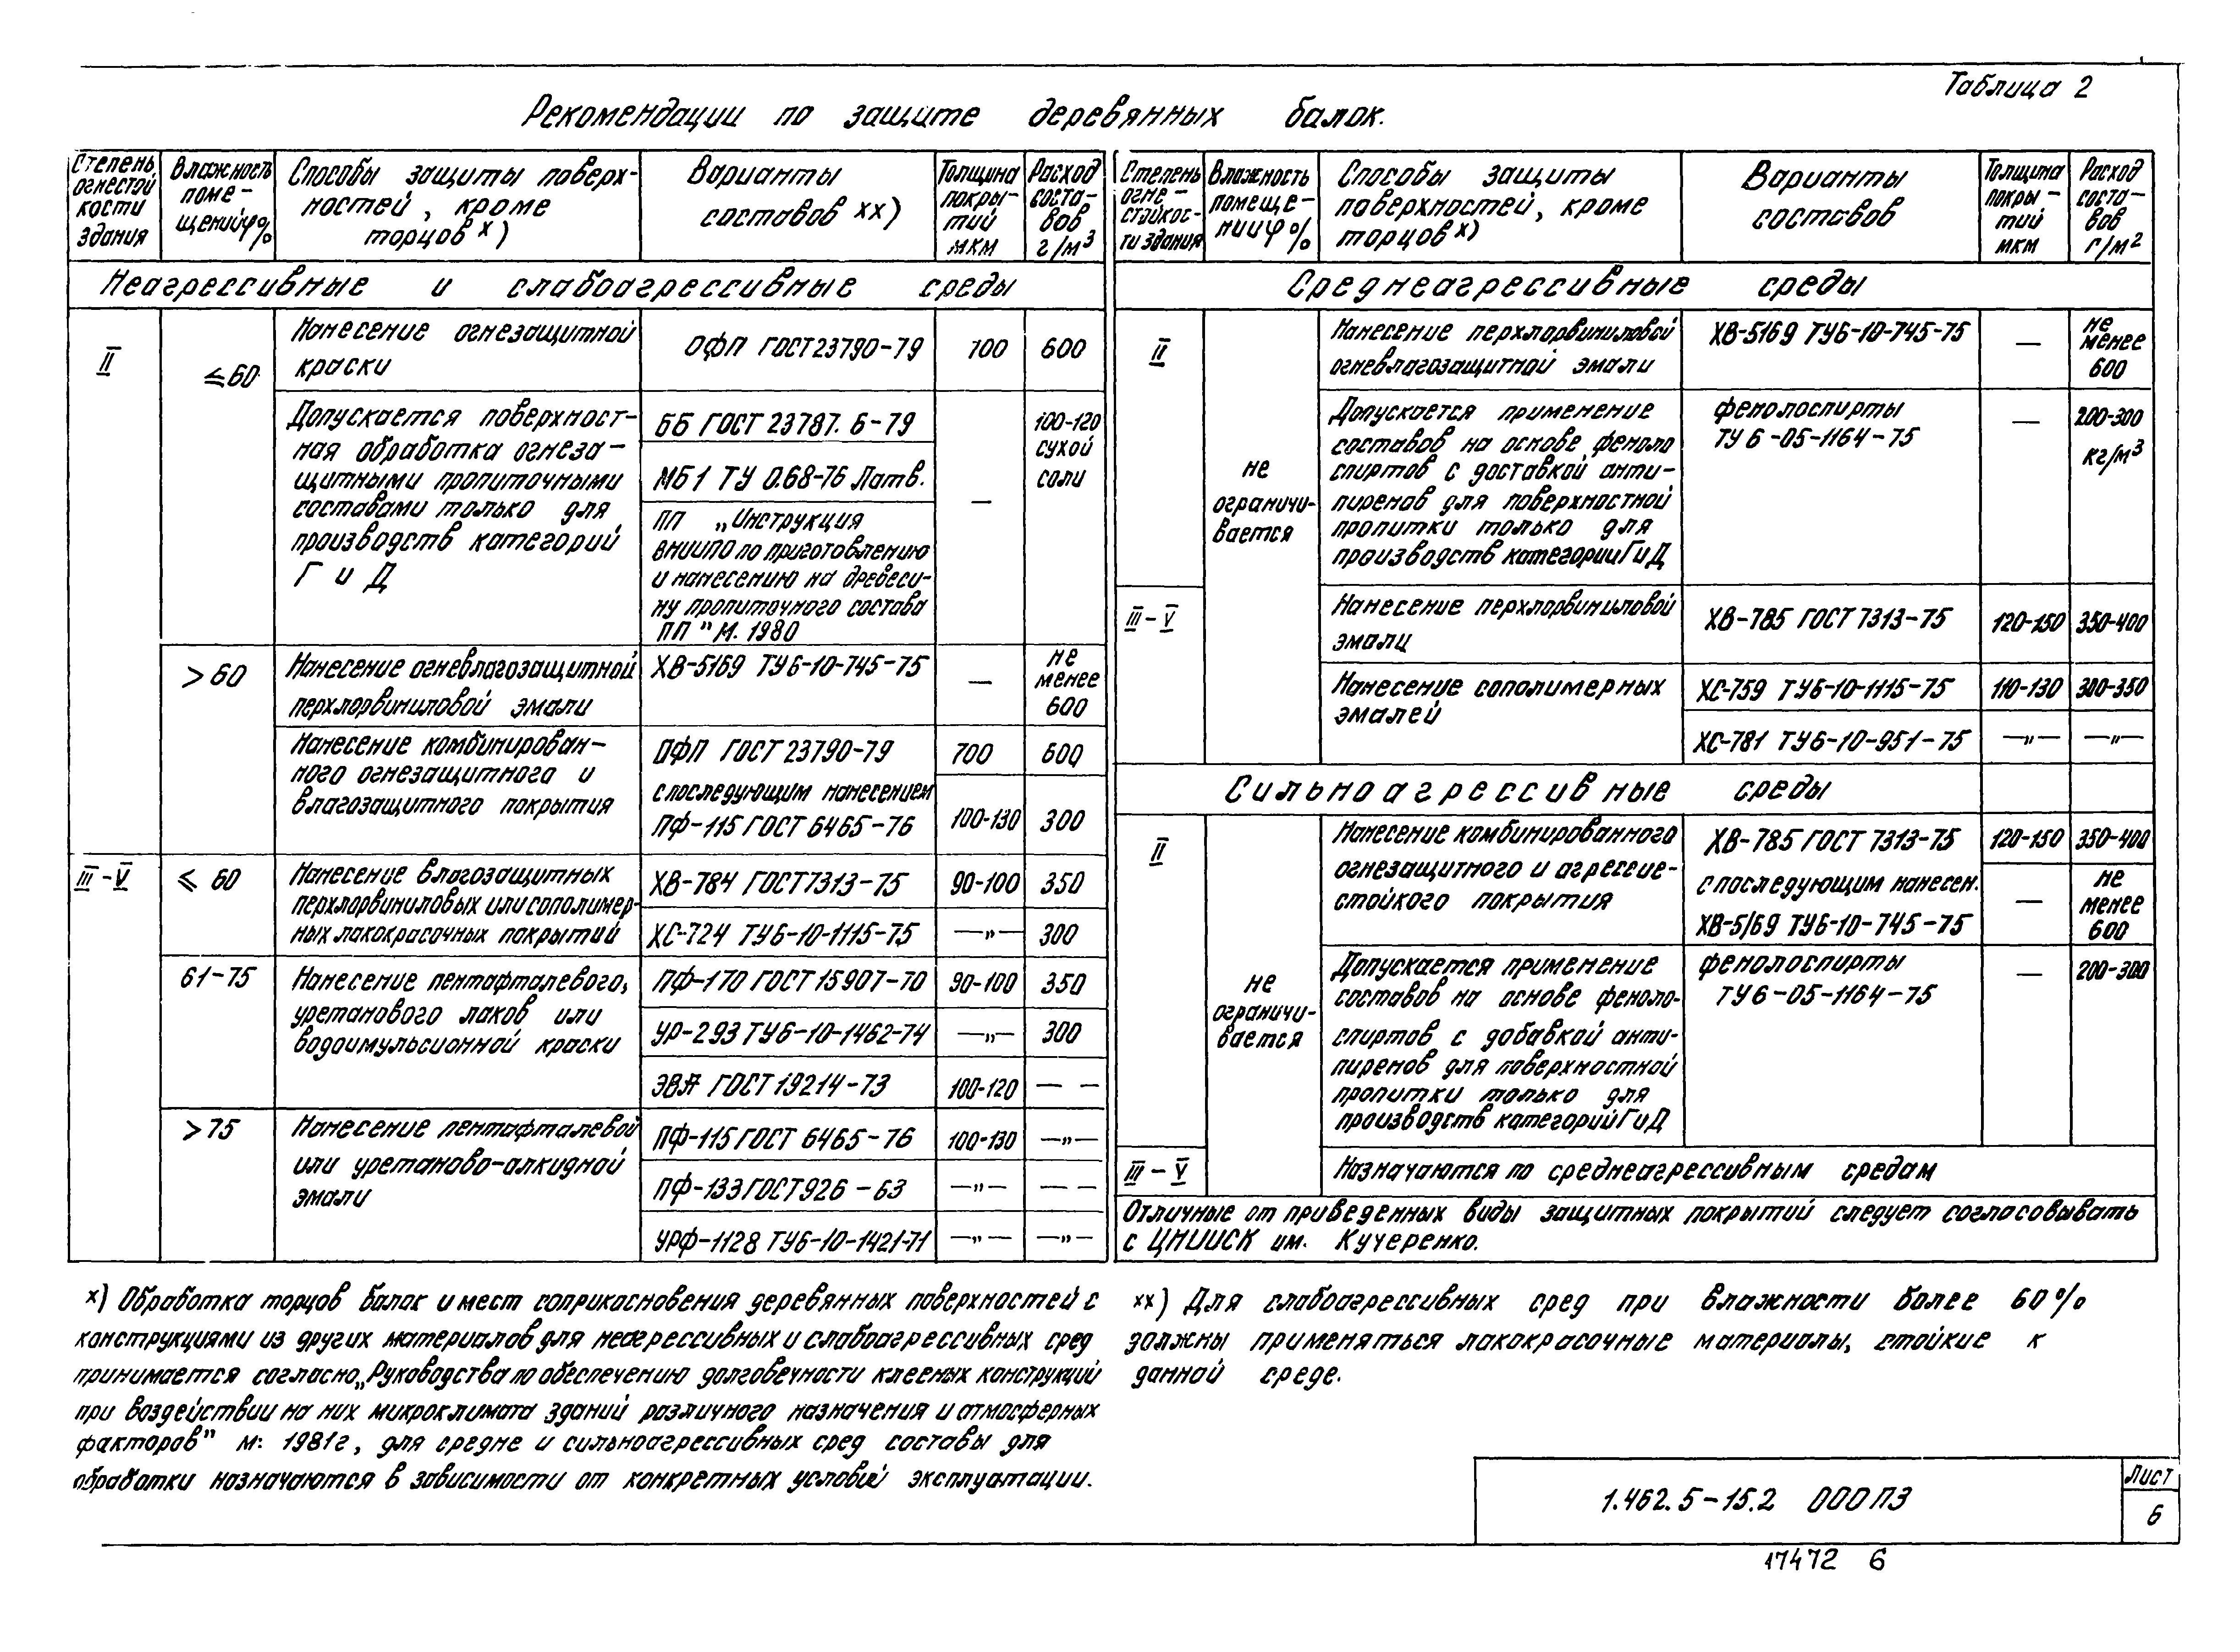 Таблица 2
Рекомендации по защите деревянных балок.
Степень огнестой кости здания
Влажность поме- щений φ%
Способы защиты поверх- ностей, кроме торцов х)
Варианты составов хх)
Толщина покры- тий мкм
Расход соста- вов г/м³
Неагрессивные и слабоагрессивные среды
II
≤60
Нанесение огнезащитной
краски
ОФП ГОСТ 23790-79
700
600
Допускается поверхност-
ная обработка огнеза-
щитными пропиточными
составами только для
производств категорий
Г и Д
ББ ГОСТ 23787. 6-79
МБ1 ТУ 0.68-76 Латв.
ПП „Инструкция
ВНИИПО по приготовлению
и нанесению на древеси-
ну пропиточного состава
ПП" М. 1980
—
100-120
сухой
соли
>60
Нанесение огневлагозащитной
перхлорвиниловой эмали
ХВ-5169 ТУ6-10-745-75
—
не
менее
600
Нанесение комбинирован-
ного огнезащитного и
влагозащитного покрытия
ОФП ГОСТ 23790-79
700
600
с последующим нанесением
ПФ-115 ГОСТ 6465-76
100-130
300
III-V
≤ 60
Нанесение влагозащитных
перхлорвиниловых или сополимер-
ных лакокрасочных покрытий
ХВ-784 ГОСТ 7313-75
90-100
350
ХС-724 ТУ6-10-1115-75
—„—
300
61-75
Нанесение пентафталевого,
уретанового лаков или
водоимульсионной краски
ПФ-170 ГОСТ 15907-70
90-100
350
УР-293 ТУ6-10-1462-74
—„—
300
ЭВА ГОСТ 19214-73
100-120
— —
>75
Нанесение пентафталевой
или уретаново-алкидной
эмали
ПФ-115 ГОСТ 6465-76
100-130
—„—
ПФ-133 ГОСТ 926-63
—„—
— —
УРФ-1128 ТУ6-10-1421-71
—„—
—„—
Степень огне- стойкос- ти здания
Влажность помеще- нии φ%
Способы защиты поверхностей, кроме торцов х)
Варианты составов
Толщина покры- тий мкм
Расход соста- вов г/м²
Среднеагрессивные среды
II
не
ограничи-
вается
Нанесение перхлорвиниловой
огневлагозащитной эмали
ХВ-5169 ТУ6-10-745-75
—
не
менее
600
Допускается применение
составов на основе феноло
спиртов с доставкой анти-
пиренов для поверхностной
пропитки только для
производств категории Г и Д
фенолоспирты
ТУ 6-05-1164-75
—
200-300
кг/м³
III-V
Нанесение перхлорвиниловой
эмали
ХВ-785 ГОСТ 7313-75
120-150
350-400
Нанесение сополимерных
эмалей
ХС-759 ТУ6-10-1115-75
110-130
300-350
ХС-781 ТУ6-10-951-75
—„—
—„—
Сильноагрессивные среды
II
не
ограничи-
вается
Нанесение комбинированного
огнезащитного и агрессие-
стойкого покрытия
ХВ-785 ГОСТ 7313-75
120-150
350-400
с последующим нанесен.
ХВ-5169 ТУ6-10-745-75
—
не
менее
600
Допускается применение
составов на основе феноло-
спиртов с добавкой анти-
пиренов для поверхностной
пропитки только для
производств категорий Г и Д
фенолоспирты
ТУ6-05-1164-75
—
200-300
III-V
Назначаются по среднеагрессивным средам
Отличные от приведенных виды защитных покрытий следует согласовывать
с ЦНИИСК им. Кучеренко.
х) Обработка торцов балок и мест соприкосновения деревянных поверхностей с
конструкциями из других материалов для неагрессивных и слабоагрессивных сред
принимается согласно „Руководства по обеспечению долговечности клееных конструкций
при воздействии на них микроклимата зданий различного назначения и атмосферных
факторов" М: 1981г, для средне и сильноагрессивных сред составы для
обработки назначаются в зависимости от конкретных условий эксплуатации.
хх) Для слабоагрессивных сред при влажности более 60%
должны применяться лакокрасочные материалы, стойкие к
данной среде.
1.462.5-15.2 000ПЗ
Лист
6
17472 6